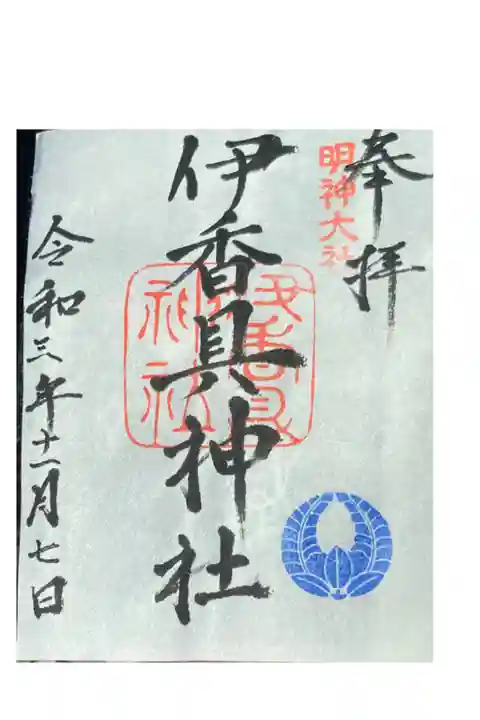 奉拝
明神大社
伊香具神社
伊香具神社
令和三年十一月七日